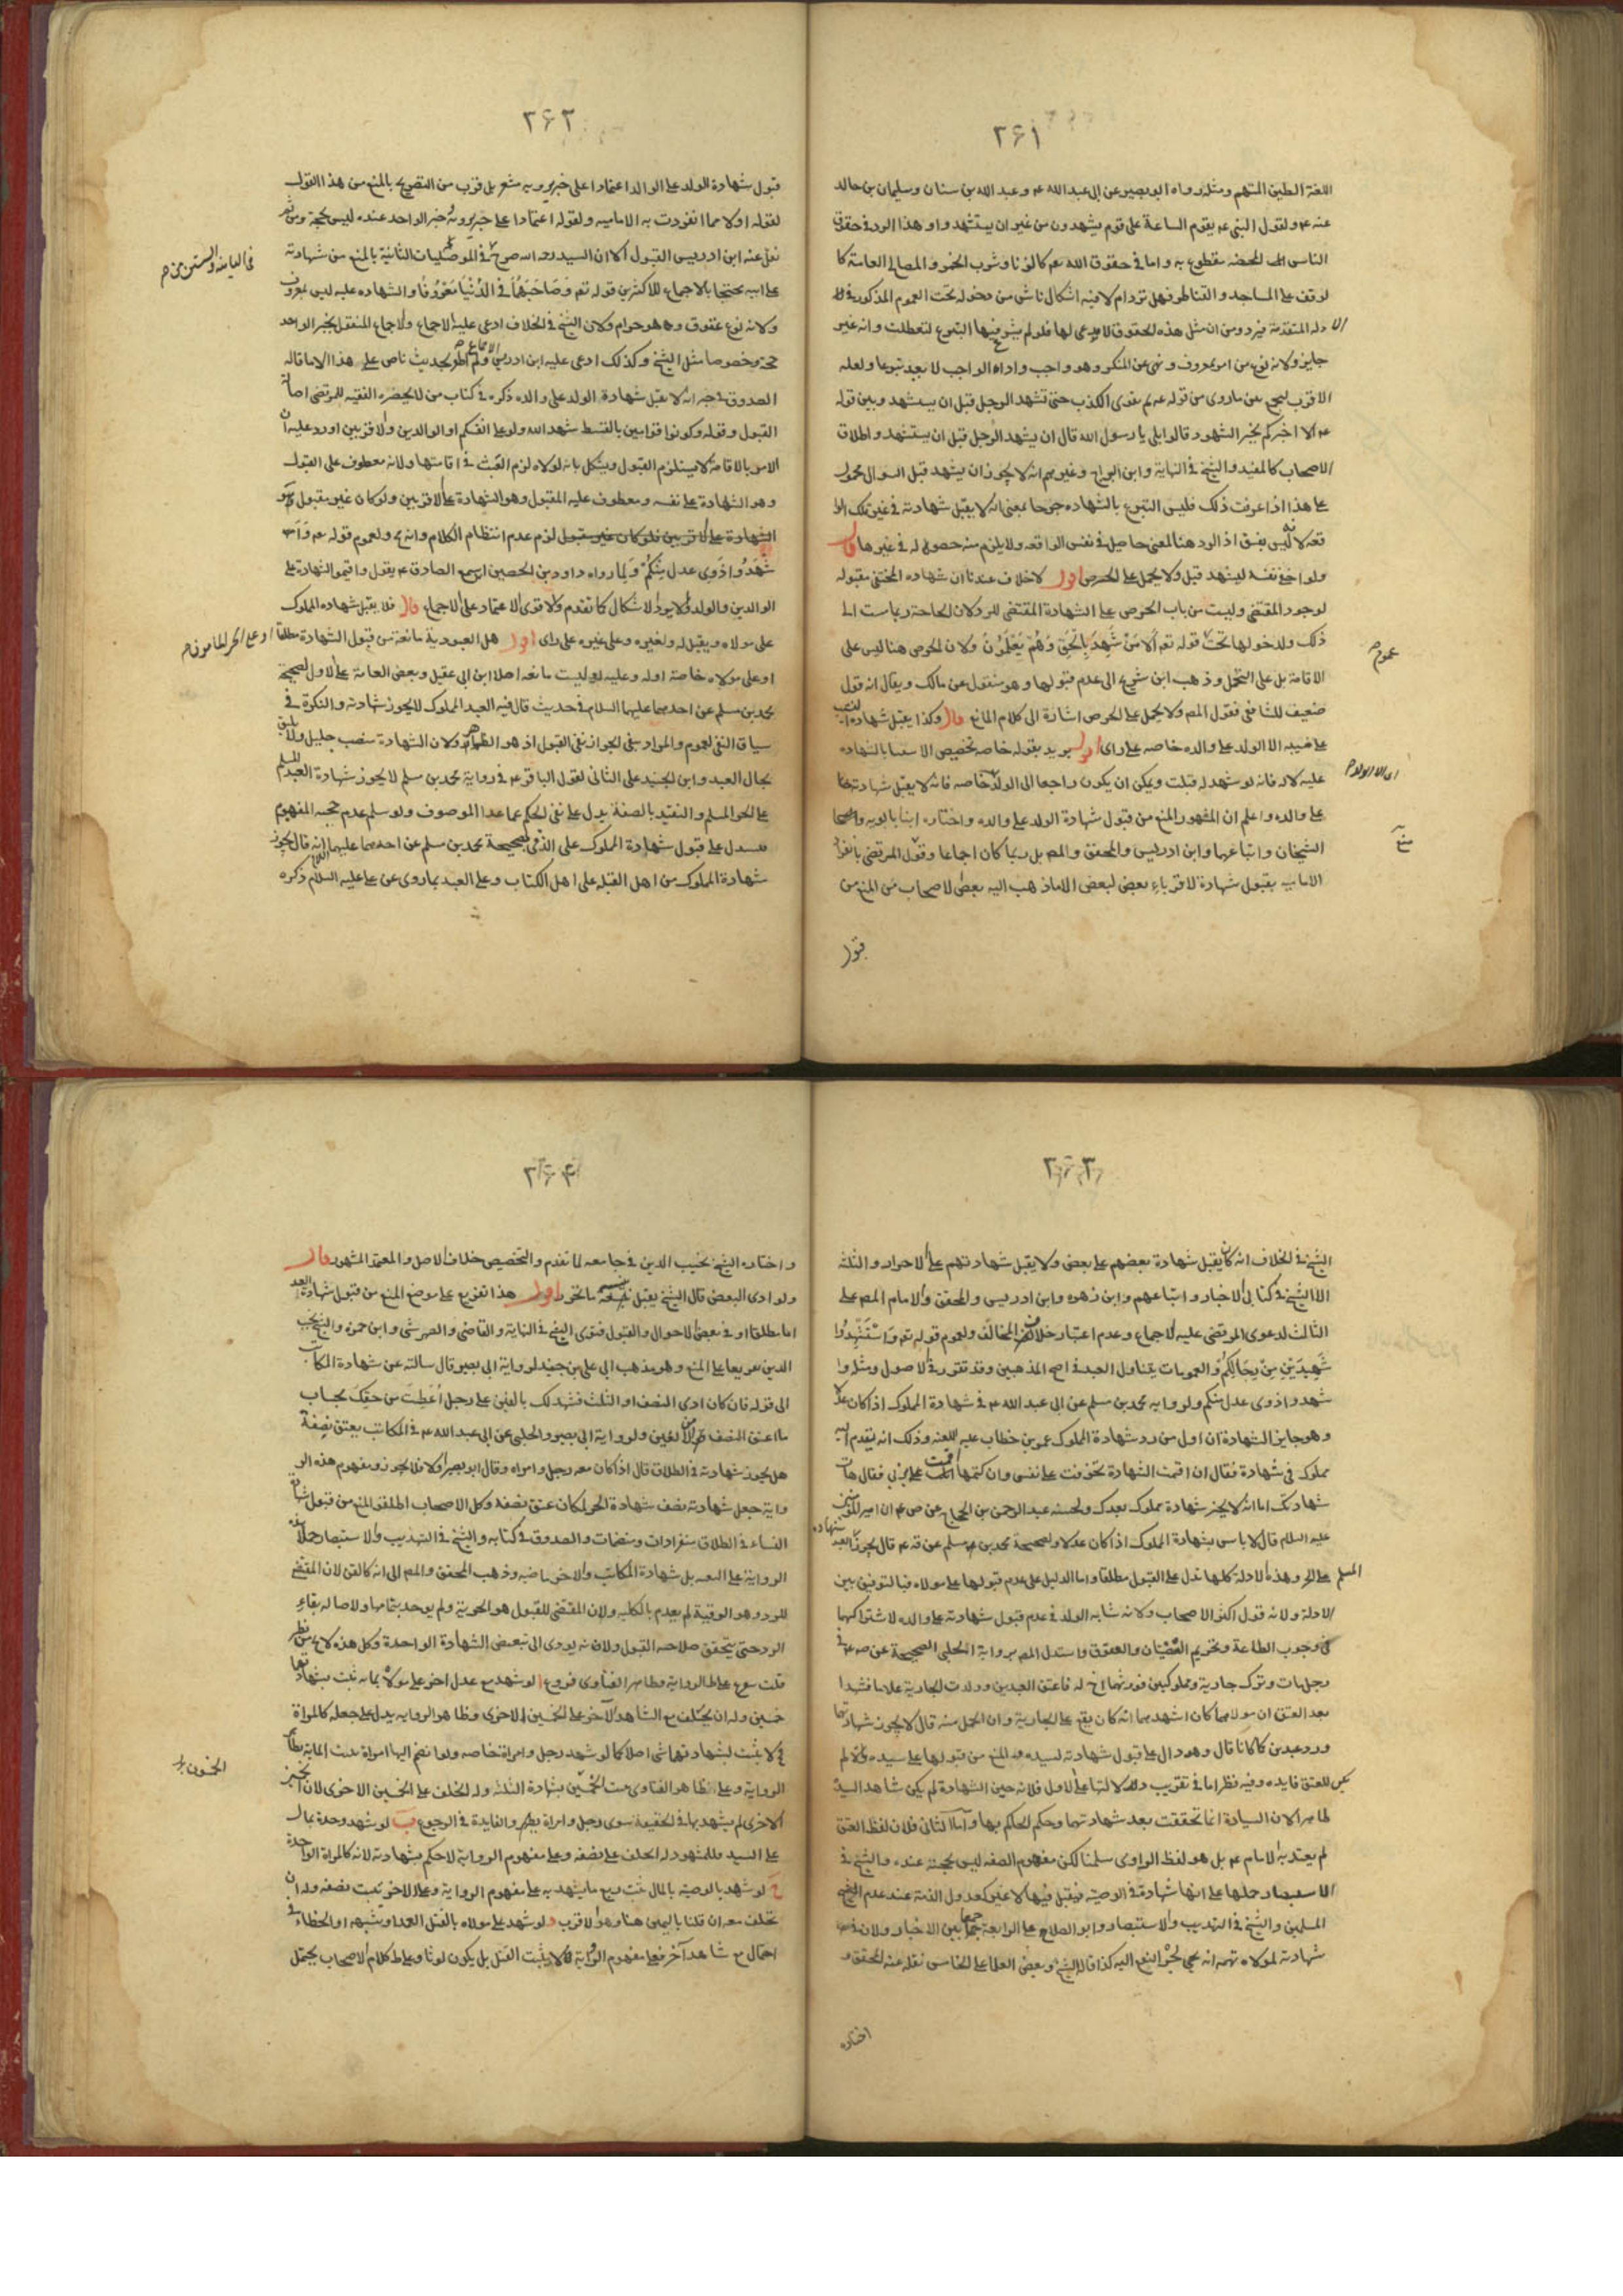 ٢٤١
اللعنة الطين المتهم ومثله رواه ابو بصير عن ابى عبد الله ع و عبد الله بن سنان وسليمان بن خالد
عنه ع ولقول النبى ع يقوم الساعة على قوم يشهدون من غير ان يستشهدوا و هذا الرد فى حقوق
الناس المحضه مقطوع به و اما فى حقوق الله تع كالزنا و شرب الخمر و المصالح العامة كا
لوقف على المساجد و القناطر فهل ترد ام لا فيه اشكال ناشى من دخوله تحت العموم المذكور فى
الادله المتقدمة فيرد ومن ان مثل هذه الحقوق لا مدعى لها فلو لم يشرع فيها التبرع لتعطلت و انه غير
جايز ولانه نوع من امر بمعروف و نهى عن المنكر وهو واجب و اداء الواجب لا يعد تبرعا ولعله
الاقرب للجمع بين ما روى من قوله ع ثم يفشو الكذب حتى تشهد الرجل قبل ان يستشهد و بين قوله
ع الا اخبركم بخير الشهود قالوا بلى يا رسول الله قال ان يشهد الرجل قبل ان يستشهد و اطلاق
الاصحاب كالمفيد و الشيخ فى النهاية و ابن البراج و غيرهم انه لا يجوز ان يشهد قبل السوال محمول
على هذا اذا عرفت ذلك فليس التبرع بالشهاده جرحا بمعنى انه لا يقبل شهادته فى غير تلك الوا
قعه لانه ليس بفسق اذ الرد هنا لمعنى حاصل فى نفس الواقعه ولا يلزم منه حصوله فى غيرها قال
ولو اخفى نفسه ليشهد قبل ولا يحمل على الحرص اقول لا خلاف عندنا ان شهاده المختفى مقبوله
لوجود المقتضى وليست من باب الحرص على الشهادة المقتضى للرد و لان الحاجة ربما ست الى
ذلك ولدخولها تحت قوله تع الا من شهد بالحق وهم يعلمون ولان الحرص هنا ليس على
عموم
الاقامة بل على التحمل و ذهب ابن شريح الى عدم قبولها و هو منقول عن مالك و يقال انه قول
ضعيف للشافعى فقول المص ولا يحمل على الحرص اشارة الى كلام المانع قال وكذا يقبل شهاده
على نسيبه الا الولد على والده خاصه على راى اقول يريد بقوله خاصه تخصيص الاستثنا بالشهاده
عليه لا له فانه لو شهد له قبلت ويمكن ان يكون راجعا الى الولد خاصه فانه لا يقبل شهادته
على والده و اعلم ان المشهور المنع من قبول شهادة الولد على والده و اختاره ابنا بابويه و
الشيخان و اتباعهما و ابن ادريس و المحقق و المص بل ربما كان اجماعا و قول المرتضى
الاماميه بقبول شهادة لاقرباء بعض لبعض الا ما ذهب اليه بعض لاصحاب من المنع من
قبول
٢٤٢
قبول شهادة الولد على الوالد اعتمادا على خبر يرويه مشعر بل قرب من التصريح بالمنع من هذا القول
لقوله اولا مما انفردت به الاماميه و لقوله اعتمادا على خبر يرونه و خبر الواحد عنده ليس بحجة ومن ثم
نقل عنه ابن ادريس القبول الا ان السيد رحمه الله صرح فى الموصليات الثانية بالمنع من شهادته
على ابيه محتجا بالاجماع للاكثرين قوله تع وصاحبهما فى الدنيا معروفا و الشهاده عليه ليس بمعروف
ولانه نوع عقوق و هو حرام ولان الشيخ فى الخلاف ادعى عليه الاجماع و لاجماع المنقل بخبر الواحد
حجة وخصوصا مثل الشيخ و كذلك ادعى عليه ابن ادريس الاجماع ولم اظفر بحديث ناص على هذا الا ما قاله
الصدوق فى خبر انه لا يقبل شهادة الولد على والده ذكره فى كتاب من لا يحضره الفقيه للمرتضى اصالة
القبول و قوله و كونوا قوامين بالقسط شهداء لله ولو على انفسكم او الوالدين و لاقربين اورد عليه ان
الامر بالاقامة لا يستلزم القبول ويشكل بانه لولاه لزم العبث فى اقامتها ولانه معطوف على القبول
وهو الشهادة على نفسه و معطوف عليه المقبول وهو الشهادة على الاقربين ولو كان غير مقبول
الشهادة على لاقربين فلو كان غير مقبول لزم عدم انتظام الكلام و انه ع ولعموم قوله تع وا
شهدوا ذوى عدل منكم و لما رواه داود بن الحصين انه سمع الصادق ع يقول و اقيموا الشهادة على
الوالدين و الولد ولا يورد الاشكال كما تقدم و لاقوى الاعتماد على لاجماع قال فلا يقبل شهاده المملوك
على مولاه و يقبل له ولغيره وعلى غيره على راى اقول هل العبودية مانعة من قبول الشهادة مطلقا
او على مولاه خاصة او له و عليه او ليست مانعه اصلا ابن ابى عقيل و بعض العامة على لاول لصحيحة
محمد بن مسلم عن احدهما عليهما السلام فى حديث قال فيه العبد المملوك لا يجوز شهادته و النكرة فى
سياق النفى لعموم والمراد بنفى الجواز نفى القبول اذ هو الظاهر ولان الشهادة منصب جليل ولا يليق
بحال العبد و ابن الجنيد على الثانى لقول الباقر ع فى رواية محمد بن مسلم لا يجوز شهادة العبد المسلم
على الحر المسلم و التقيد بالصفة يدل على نفى الحكم عما عدا الموصوف ولو سلم عدم حجيه المفهوم
فيدل على قبول شهادة المملوك على الذمى لصحيحة محمد بن مسلم عن احدهما عليهما السلام انه قال يجوز
شهادة المملوك من اهل القبله على اهل الكتاب و على العبد بما روى عن على عليه السلام ذكره
٢٤٣
الشيخ فى الخلاف انه كان يقبل شهادة بعضهم على بعض ولا يقبل شهادتهم على الاحرار و الثلثه
الا الشيخ فى كتابى الاخبار و اتباعهم و ابن زهره و ابن ادريس و المحقق و الامام المص على
الثالث لدعوى المرتضى عليه لاجماع و عدم اعتبار خلاف المخالف ولعموم قوله تع و استشهدوا
شهيدين من رجالكم و العمومات يتناول العبد فى اصح المذهبين وقد تقرر فى الاصول ومثله وا
شهدوا ذوى عدل منكم ولروايه محمد بن مسلم عن ابى عبد الله ع فى شهادة المملوك اذا كان عدلا
وهو جايز الشهادة ان اول من رد شهادة المملوك عمر بن خطاب عليه اللعنه وذلك انه تقدم اليه
مملوك فى شهادة فقال ان اقمت الشهادة تخوفت على نفسى و ان كتمتها اثمت بربى فقال هات
شهادتك اما انه لا يجيز شهادة مملوك بعدك ولحسنه عبد الرحمن بن الحجاج عن ص ع ان امير المؤمنين
عليه السلام قال لا باس بشهادة المملوك اذا كان عدلا ولصحيحة محمد بن مسلم عن قه ع قال يجوز شهادة العبد
المسلم على الحر و هذه الادلة كلها تدل على القبول مطلقا و اما الدليل على عدم قبولها على مولاه فبالتوفيق بين
الادلة ولانه قول اكثر الاصحاب ولانه شابه الولد فى عدم قبول شهادته على والده لاشتراكهما
فى وجوب الطاعة و تحريم العصيان و العقوق و استدل المص برواية الحلبى الصحيحة عن ص ع فى
رجل مات و ترك جارية و مملوكين فورثهما اخ له فاعتق العبدين و ولدت الجارية غلاما فشهدا
بعد العتق ان مولاهما كان اشهدهما انه كان يقع على الجارية و ان الحمل منه قال لا يجوز شهادتهما
ورد عبدين كما كانا قال وهو دال على قبول شهادته لسيده و المنع من قبولها على سيده و الا لم
يكن للعتق فايده وفيه نظر اما فى تقريب دلالتها على الاول فلانه حين الشهادة لم يكن شاهد السيد
ظاهرا لان السيادة انما تحققت بعد شهادتهما و حكم الحاكم بها و اما الثانى فلان لفظ العتق
لم يعتد به الامام ع بل هو لفظ الراوى سلمنا لكن مفهوم الصفه ليس بحجة عنده و الشيخ فى
الاستبصار حملها على انها شهادة فى الوصية فيقبل فيها لا غير كعدول الذمة عند عدم
المسلمين و الشيخ فى التهذيب و الاستبصار و ابو الصلاح على الرابعة جمعا بين الاخبار ولان فى
شهادته لمولاه تهمه انه يجر النفع اليه كذا قاله الشيخ و بعض العلما على الخامس نقله عنه المحقق و
اختاره
٢٤٤
و اختاره الشيخ نجيب الدين فى جامعه لما تقدم و التخصيص خلاف الاصل و المعتمد المشهور قال
ولو ادى البعض قال الشيخ يقبل بنسبة ما تحرر اقول هذا تفريع على موضع المنع من قبول شهادة العبد
اما مطلقا او فى بعض الاحوال و القبول فتوى الشيخ فى النهاية و القاضى و الصهرشتى و ابن حمزه و الشيخ نجيب
الدين تفريعا على المنع و هو مذهب ابى على بن جنيد لرواية ابى بصير قال سالته عن شهادة المكاتب
الى قوله فان كان ادى النصف او الثلث فشهد لك بالفين على رجل اعطيت من حقك بحساب
ما اعتق النصف من الالفين ولرواية ابى بصير و الحلبى عن ابى عبد الله ع فى المكاتب يعتق نصفه
هل يجوز شهادته فى الطلاق قال اذا كان معه رجل و امراه و قال ابو بصير و الا فلا يجوز و مفهوم هذه الر
واية جعل شهادته نصف شهادة الحر لمكان عتق نصفه و كل الاصحاب اطلقوا المنع من قبول شهادة
النساء فى الطلاق منفردات و منضمات و الصدوق فى كتابه و الشيخ فى التهذيب و الاستبصار حملا هذه
الرواية على التقيه بل شهادة المكاتب و الاخر ماضيه و ذهب المحقق و المص الى انه كالقن لان المقتضى
للرد و هو الرقية لم يعدم بالكليه ولان المقتضى للقبول هو الحرية ولم يوجد بتمامها ولاصاله بقاء
الرد حتى يتحقق صلاحيه القبول ولانه يودى الى تبعيض الشهادة الواحدة و كل هذه لا يخ من نظر
خمسين وله ان يحلف مع الشاهد الاخر على الخمسين الاخرى و ظاهر الروايه يدل على جعله كالمراة
فلا يثبت بشهادتهما شى اصلا كما لو شهد رجل و امراة خاصه ولو انضم اليها امراة ثبت المايه على
الاخرى لم يشهد بها فى الحقيقة سوى رجل و امراة و يظهر الفايدة فى الرجوع ب لو شهد وحده بمال
على السيد فللمشهود له الحلف على نصفه و على مفهوم الرواية لا حكم بشهادته لانه كالمراة الواحدة
ج لو شهد بالوصية بالمال ثبت ربع ما يشهد به على مفهوم الرواية و على الاخر يثبت نصفه وله ان
يحلف معه ان قلنا باليمين هنا و هو الاقرب د لو شهد على مولاه بالقتل العمد او شبهه او الخطاء
احتمال مع شاهد آخر فعلى مفهوم الرواية لا يثبت القتل بل يكون لوثا و على ظ كلام الاصحاب يحتمل